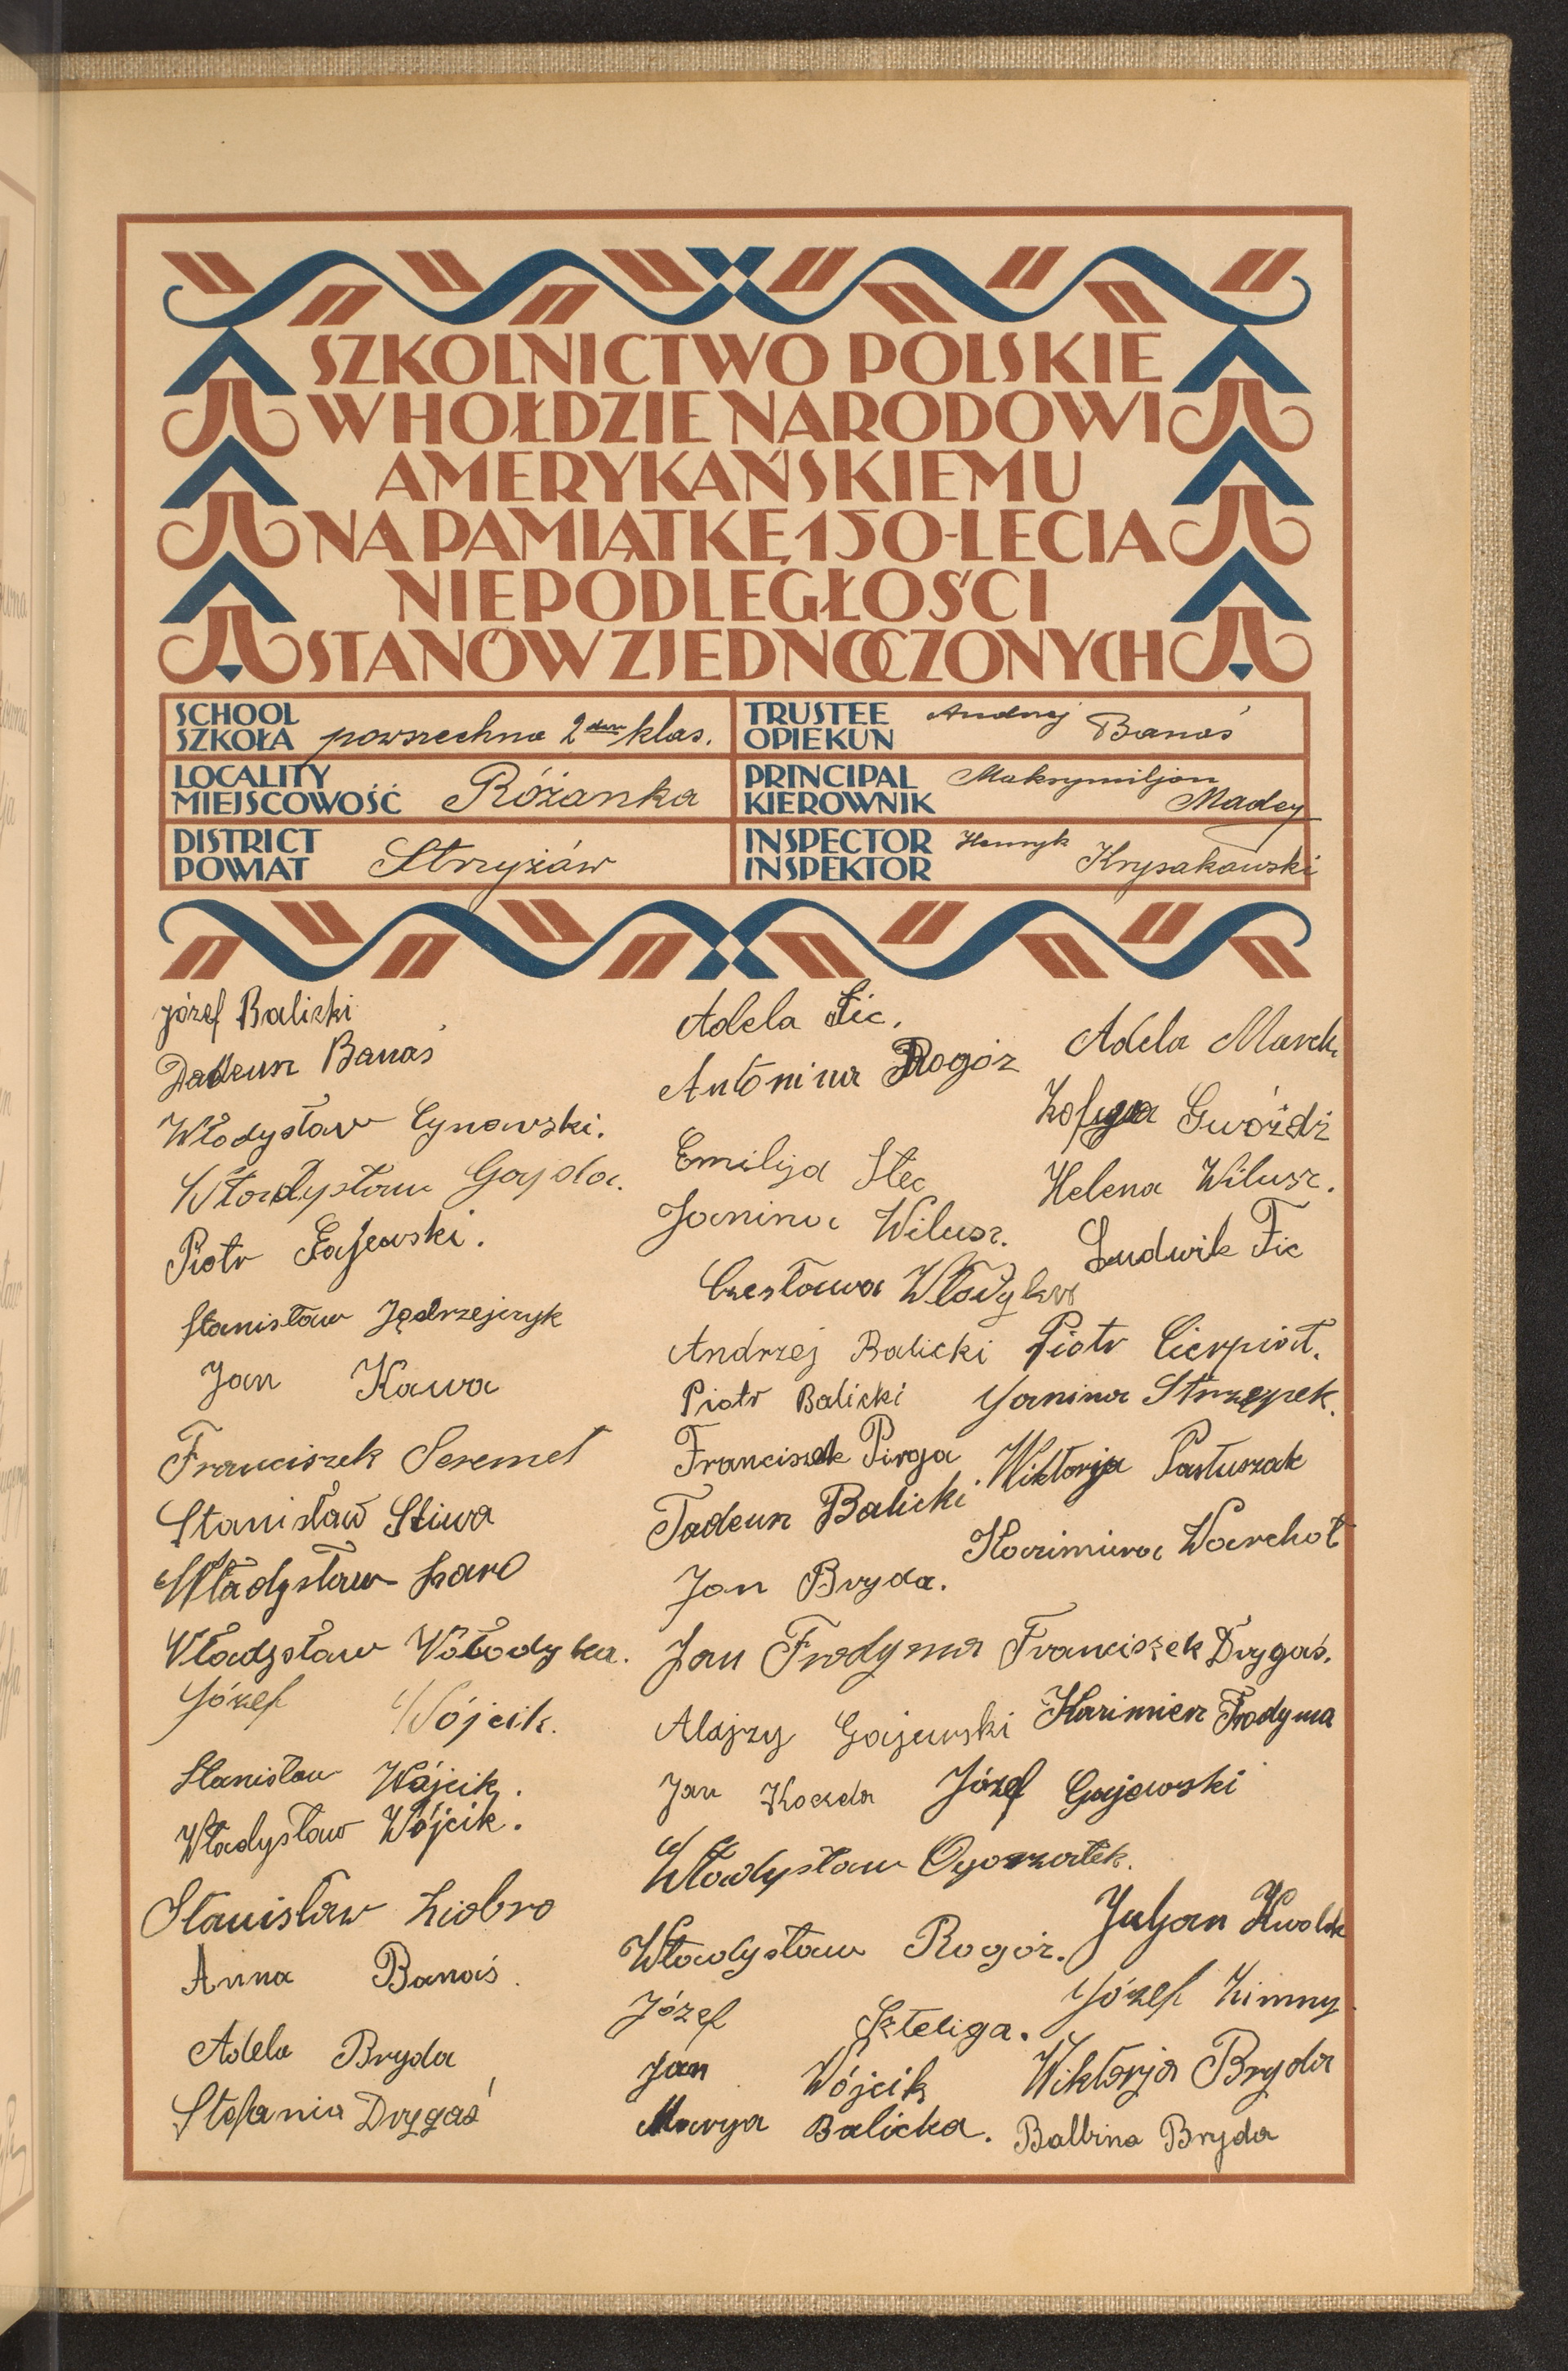 SZKOLNICTWO POLSKIE
W HOŁDZIE NARODOWI
AMERYKAŃSKIEMU
NA PAMIĄTKĘ 150-LECIA
NIEPODLEGŁOŚCI
STANÓW ZJEDNOCZONYCH
SCHOOL
SZKOŁA powszechna 2 klas.
TRUSTEE
OPIEKUN Andrzej Banaś
LOCALITY
MIEJSCOWOŚĆ Różanka
PRINCIPAL
KIEROWNIK Maksymiljan Madey
DISTRICT
POWIAT Strzyżów
INSPECTOR
INSPEKTOR Henryk Krysakowski
Józef Balicki
Tadeusz Banaś
Władysław Cynarski.
Władysław Gajda.
Piotr Gajewski.
Stanisław Jędrzejczyk
Jan Kawa
Franciszek Seremet
Stanisław Śliwa
Władysław
Władysław Włodyka.
Józef Wójcik.
Stanisław Wójcik.
Władysław Wójcik.
Stanisław Ziobro
Anna Banaś.
Adela Bryda
Stefania Drygaś
Adela Fic.
Antonina Rogóz
Emilija Stec
Janina Wilusz.
Czesława Włodyka
Andrzej Balicki
Piotr Balicki
Franciszek Pirga
Tadeusz Balicki
Jan Bryda.
Jan Frodyma
Alojzy Gajewski
Jan
Władysław Ogorzałek.
Władysław Rogóż.
Józef Szteliga.
Jan Wójcik
Marya Balicka.
Adela Marek
Zofyja Gwóźdź
Helena Wilusz.
Ludwik Fic
Piotr Cierpioł.
Janina Strzępek.
Wiktorja Pastuszak
Kazimiera Warchoł
Franciszek Drygaś.
Kazimierz Frodyma
Józef Gajewski
Juljan
Józef Zimny.
Wiktorja Bryda
Balbina Bryda